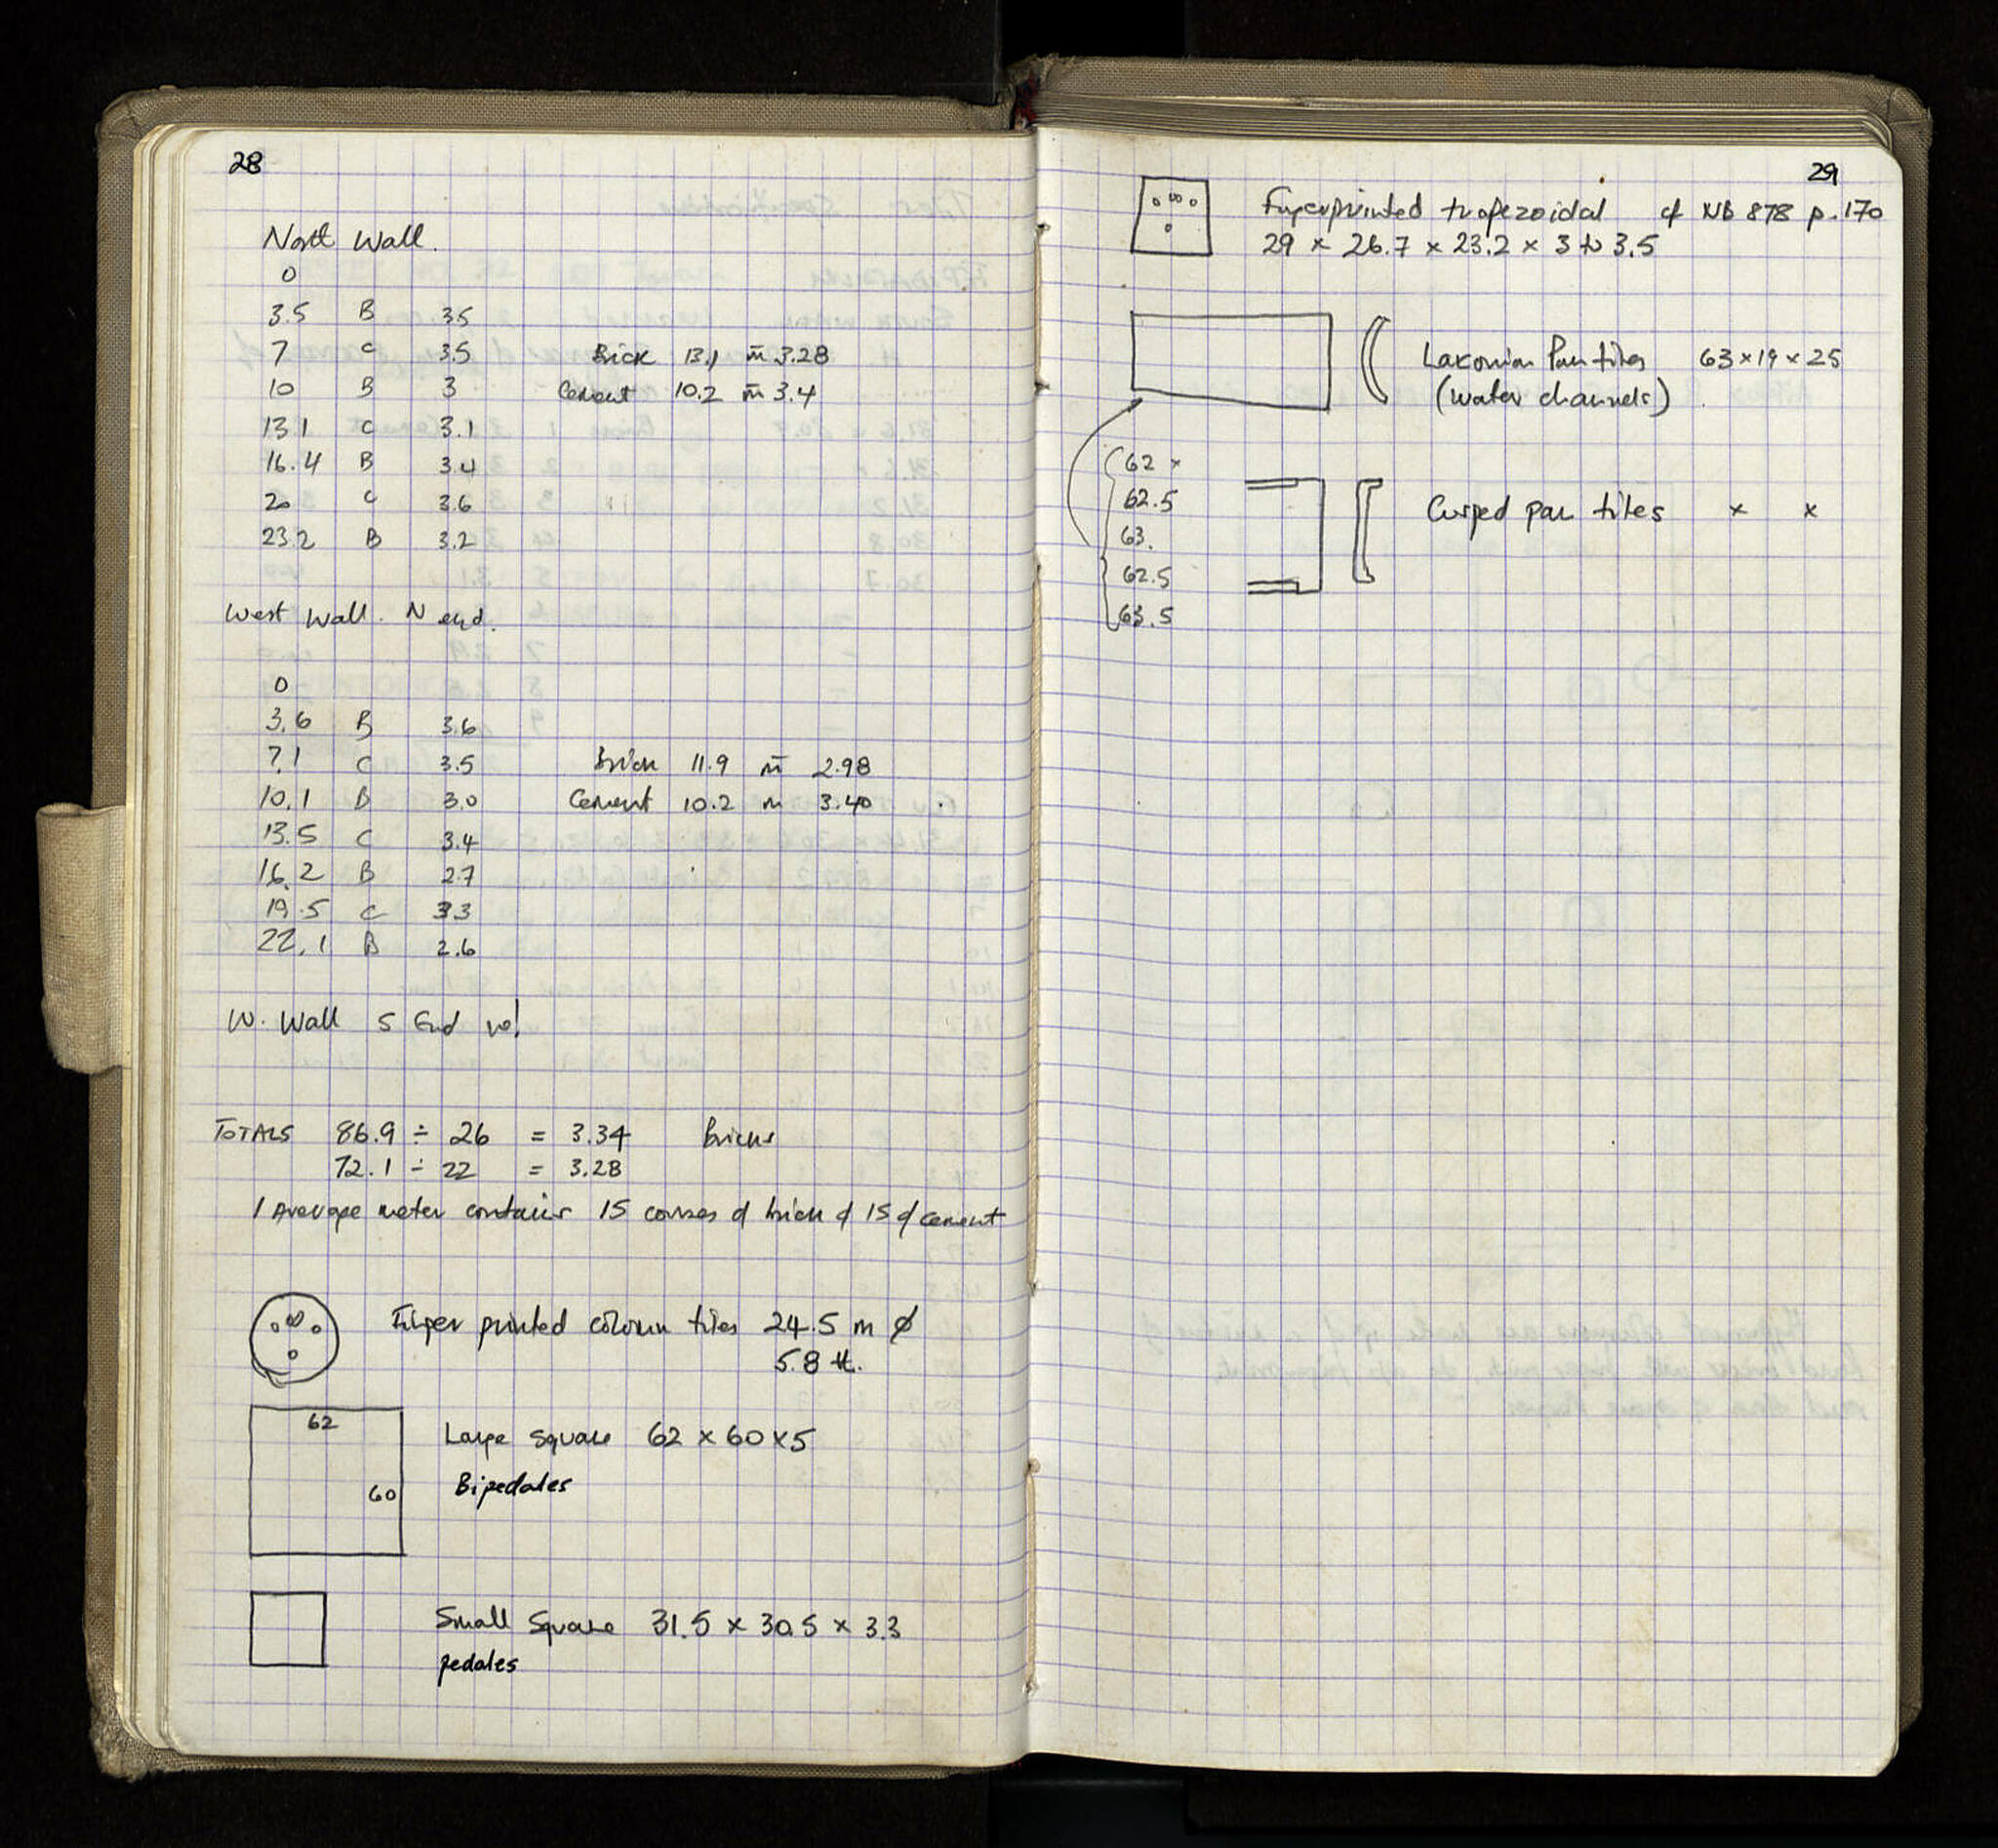 28
North Wall.
0
3.5 B 3.5
7 C 3.5 Brick 13.1 m̄ 3.28
10 B 3 Cement 10.2 m̄ 3.4
13.1 C 3.1
16.4 B 3.4
20 C 3.6
23.2 B 3.2
West Wall. N end.
0
3.6 B 3.6
7.1 C 3.5 Brick 11.9 m̄ 2.98
10.1 B 3.0 Cement 10.2 m 3.40
13.5 C 3.4
16.2 B 2.7
19.5 C 3.3
22.1 B 2.6
W. Wall S End no!
TOTALS 86.9 ÷ 26 = 3.34 Bricks
72.1 ÷ 22 = 3.28
1 Average meter contains 15 courses of brick & 15 of cement
Finger printed column tiles 24.5 m ø
5.8 tt.
62
60
Large Square 62 x 60 x 5
Bipedales
Small Square 31.5 x 30.5 x 3.3
pedales
29
Fingerprinted trapezoidal cf NB 878 p. 170
29 x 26.7 x 23.2 x 3 to 3.5
Lakonian Pan tiles 63 x 19 x 25
(water channels)
62 x
62.5
63.
62.5
63.5
Cusped pan tiles x x